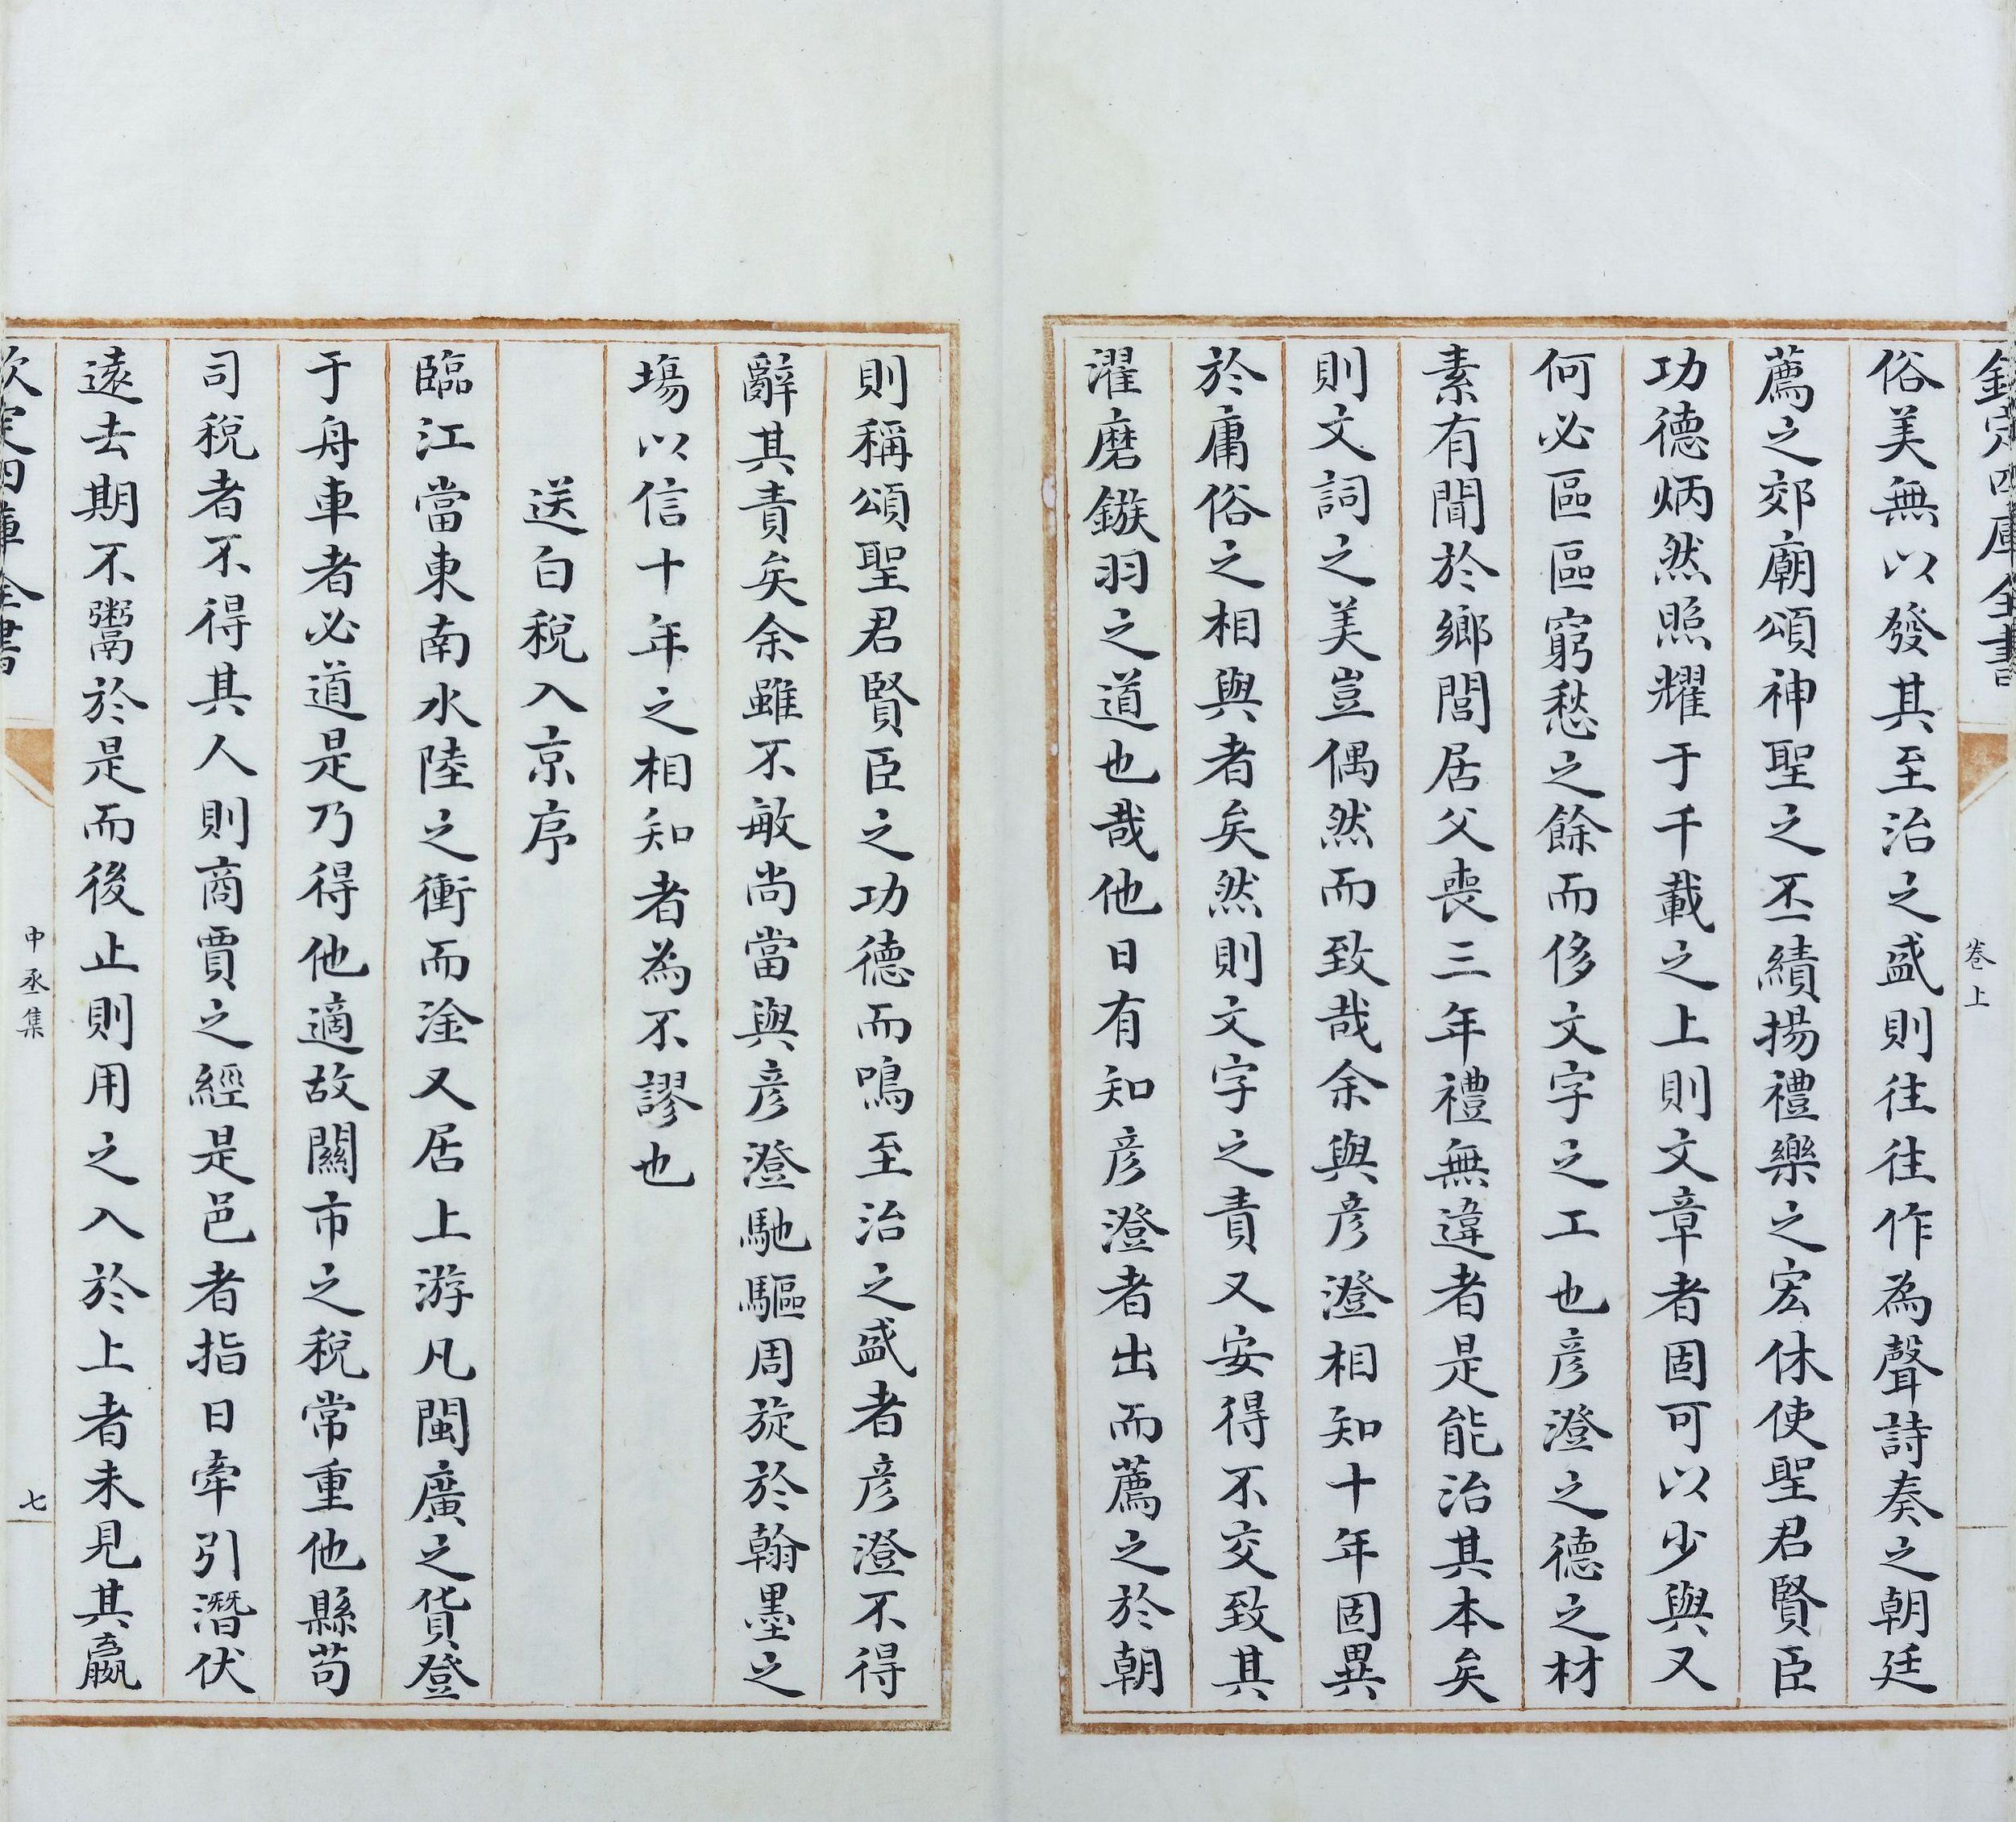 欽定四庫全書
卷上
俗美無以發其至治之盛則徃徃作為聲詩奏之朝廷
薦之郊廟頌神聖之丕績揚禮樂之宏休使聖君賢臣
功德炳然照耀于千載之上則文章者固可以少與又
何必區區窮愁之餘而侈文字之工也彦澄之德之材
素有聞於鄉閭居父喪三年禮無違者是能治其本矣
則文詞之美豈偶然而致哉余與彦澄相知十年固異
於庸俗之相與者矣然則文字之責又安得不交致其
濯磨鏃羽之道也哉他日有知彦澄者出而薦之於朝
則稱頌聖君賢臣之功德而鳴至治之盛者彦澄不得
辭其責矣余雖不敏尚當與彦澄馳驅周旋於翰墨之
塲以信十年之相知者為不謬也
送白稅入京序
臨江當東南水陸之衝而淦又居上游凡閩廣之貨登
于舟車者必道是乃得他適故關市之稅常重他縣苟
司稅者不得其人則商賈之經是邑者指日牽引潛伏
遠去期不鬻於是而後止則用之入於上者未見其贏
欽定四庫全書
申丞集
七